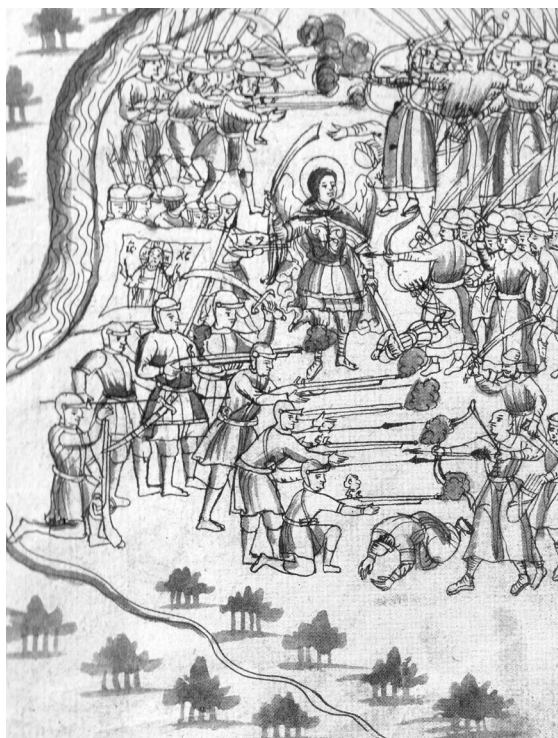 ІС ХС